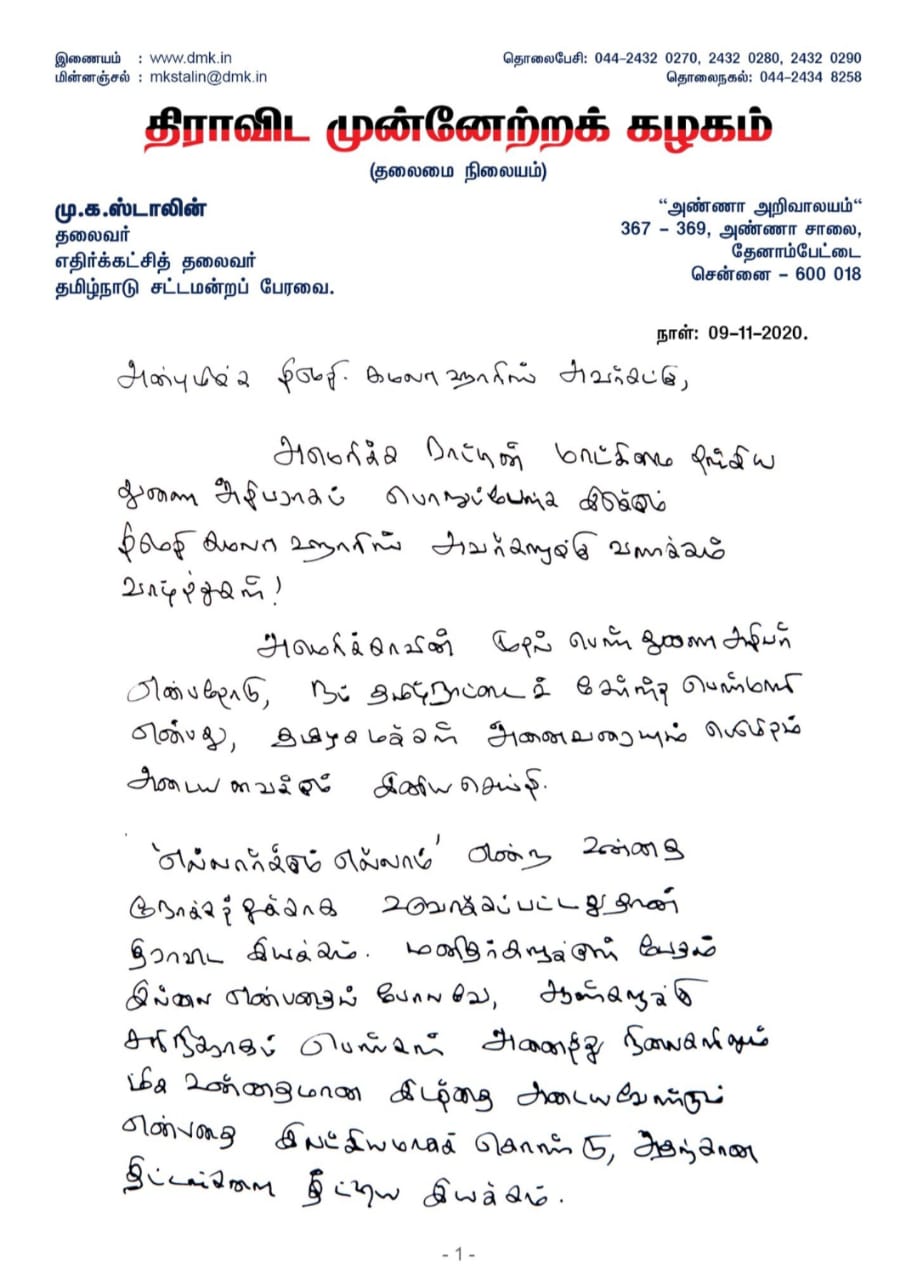 இணையம் : www.dmk.in
மின்னஞ்சல் : mkstalin@dmk.in
தொலைபேசி: 044-2432 0270, 2432 0280, 2432 0290
தொலைநகல்: 044-2434 8258
திராவிட முன்னேற்றக் கழகம்
(தலைமை நிலையம்)
மு.க.ஸ்டாலின்
தலைவர்
எதிர்க்கட்சித் தலைவர்
தமிழ்நாடு சட்டமன்றப் பேரவை.
“அண்ணா அறிவாலயம்“
367 – 369, அண்ணா சாலை,
தேனாம்பேட்டை
சென்னை – 600 018
நாள்: 09-11-2020.
அன்புமிக்க திருமதி. கமலா ஹாரிஸ் அவர்கட்கு,
அமெரிக்க நாட்டின் மாட்சிமை தங்கிய
துணை அதிபராகப் பொறுப்பேற்க இருக்கும்
திருமதி கமலா ஹாரிஸ் அவர்களுக்கு வணக்கம்
வாழ்த்துகள்!
அமெரிக்காவின் முதல் பெண் துணை அதிபர்
என்பதோடு, நம் தமிழ்நாட்டைச் சேர்ந்த பெண்மணி
என்பது, தமிழக மக்கள் அனைவரையும் பெருமிதம்
அடைய வைக்கும் இனிய செய்தி.
'எல்லார்க்கும் எல்லாம்' என்ற உன்னத
நோக்கத்துக்காக உருவாக்கப்பட்டதுதான்
திராவிட இயக்கம். மனிதர்களுக்குள் பேதம்
இல்லை என்பதைப் போலவே, ஆண்களுக்கு
சரிநிகராகப் பெண்கள் அனைத்து நிலைகளிலும்
மிக உன்னதமான இடத்தை அடையவேண்டும்
என்பதை இலட்சியமாகக் கொண்டு, அதற்கான
திட்டங்களை தீட்டிய இயக்கம்.
- 1 -